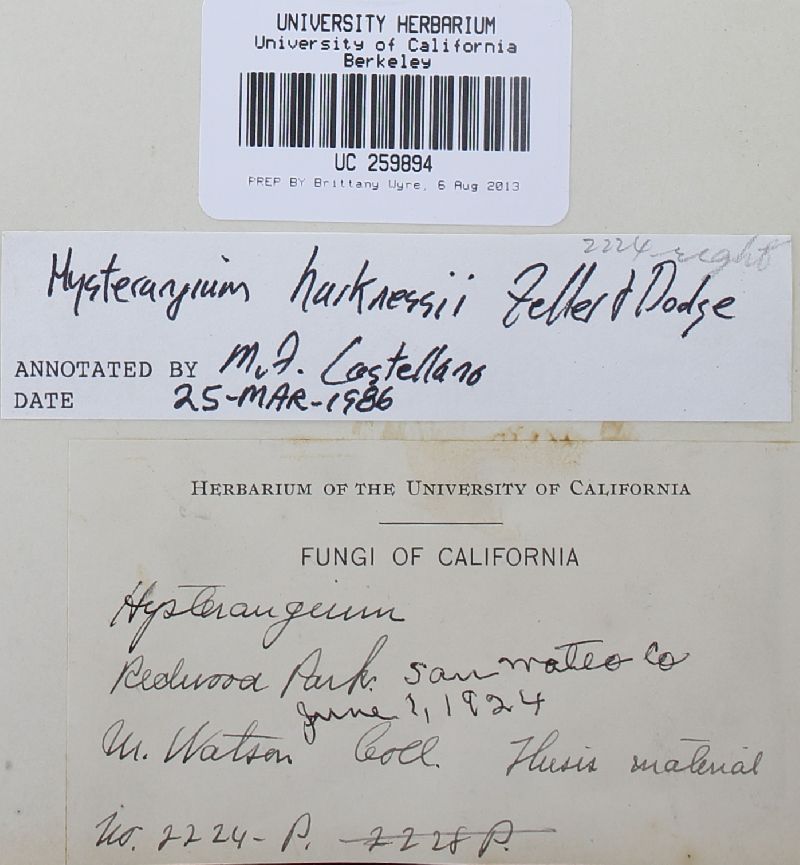 UNIVERSITY HERBARIUM
University of California
Berkeley
UC 259894
PREP BY Brittany Wyre, 6 Aug 2013
2224 right
Hysterangium harknessii Zeller & Dodge
ANNOTATED BY M.A. Castellano
DATE 25-MAR-1986
HERBARIUM OF THE UNIVERSITY OF CALIFORNIA
FUNGI OF CALIFORNIA
Hysterangium
Redwood Park. San Mateo Co
June 1, 1924
M. Watson Coll. Thesis material
No. 2224-P. 2228 P.